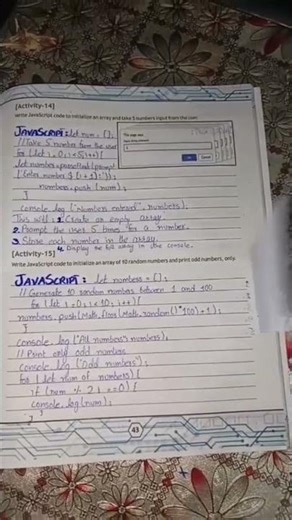 [Activity-14]
Write JavaScript code to initialize an array and take 5 numbers input from the user.
JAVASCRIPT: let num = [];
// Take 5 number from the user
for (let i = 0; i < 5; i++) {
let number = parseFloat (prompt
(`Enter number $ {i + 1}:`));
numbers.push (num);
}
console.log ("Numbers entered", numbers);
This will: 1. Create an empty array.
2. Prompt the user 5 times for a number.
3. Store each number in the array.
4. Display the full array in the console.
[Activity-15]
Write JavaScript code to initialize an array of 10 random numbers and print odd numbers, only.
JAVASCRIPT: let numbers = [];
// Generate 10 random numbers between 1 and 100
for (let i = 0; i < 10; i++) {
numbers.push (Math.floor (Math.random () * 100) + 1);
}
console.log ("All numbers" numbers);
// Print only odd numbers
console.log ("Odd numbers");
for (let num of numbers) {
if (num % 2 != 0) {
console.log (num);
}
43